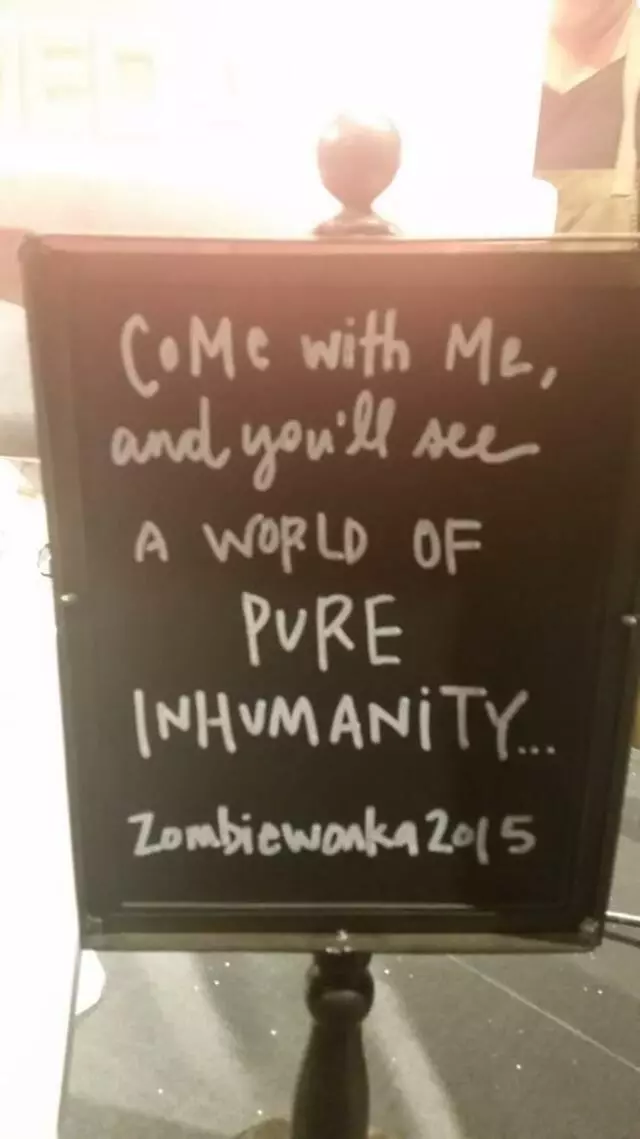 CoMe with Me,
and you'll see
A WORLD OF
PURE
INHUMANiTY...
Zombiewonka2015